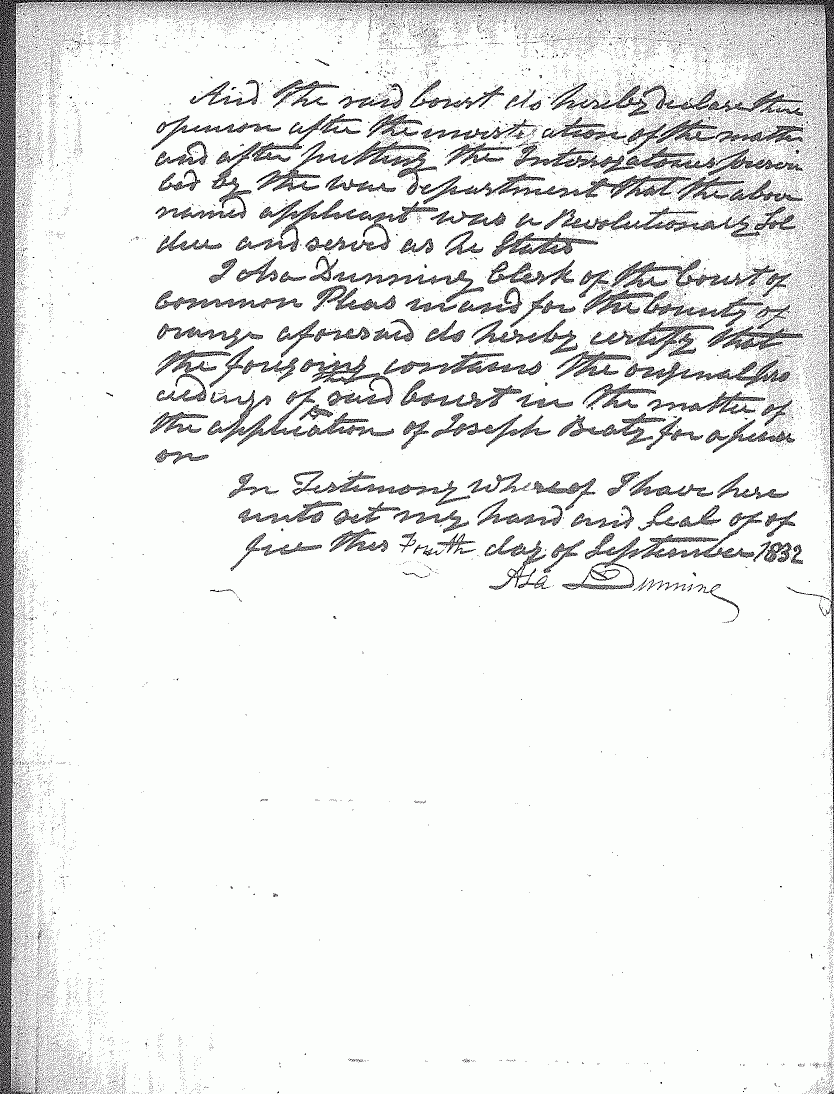 And the said Court do hereby declare there
openion after the investi ation of the matte
and after putting the Interrogatories prescri
bed by the war department that the above
named applicant was a Revolutionary Sol
dier and served as he States
I Asa Dunning Clerk of the Court of
Common Pleas in and for the County of
orange aforesaid do hereby certify that
the foregoing contains the original pro
ceedings of the said Court in the matter of
the application of Joseph Beaty for a pensi
on
In Testimony Whereof I have here
unto set my hand and Seal of of
fice this Fourth day of September 1832
Asa Dunning